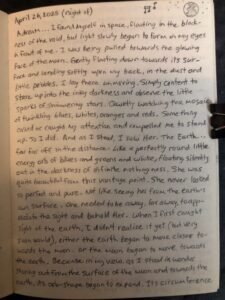 April 29, 2025 (night of)
A dream... I found myself in space, floating in the black-
ness of the void, but light slowly began to form in my eyes
in front of me. I was being pulled towards the glowing
face of the moon. Gently floating down towards its sur-
face and landing softly upon my back, in the dust and
little pebbles. I lay there unmoving. Simply content to
stare up into the inky darkness and observe the little
sparks of shimmering stars. Quietly watching the mosaic
of twinkling blues, whites, oranges and reds. Something
caught my attention and compelled me to stand
up. So I did. And as I stood, I saw Her. The Earth...
far far off in the distance. Like a perfectly round little
orb of blues and greens and white, floating silently
out in the darkness of infinite nothingness. She was
quite beautiful from this vantage point. She never looked
so perfect and pure. Not like seeing her from the Earth's
own surface. One needed to be away, far away, to app-
reciate the sight and behold Her. When I first caught
sight of the earth, I didn't realize it yet (but very
soon would), either the earth began to move closer to-
wards the moon, or the moon began to move towards
the earth. Because in my view, as I stood in wonder
staring out from the surface of the moon and towards the
earth, its orb-shape began to expand. Its circumference